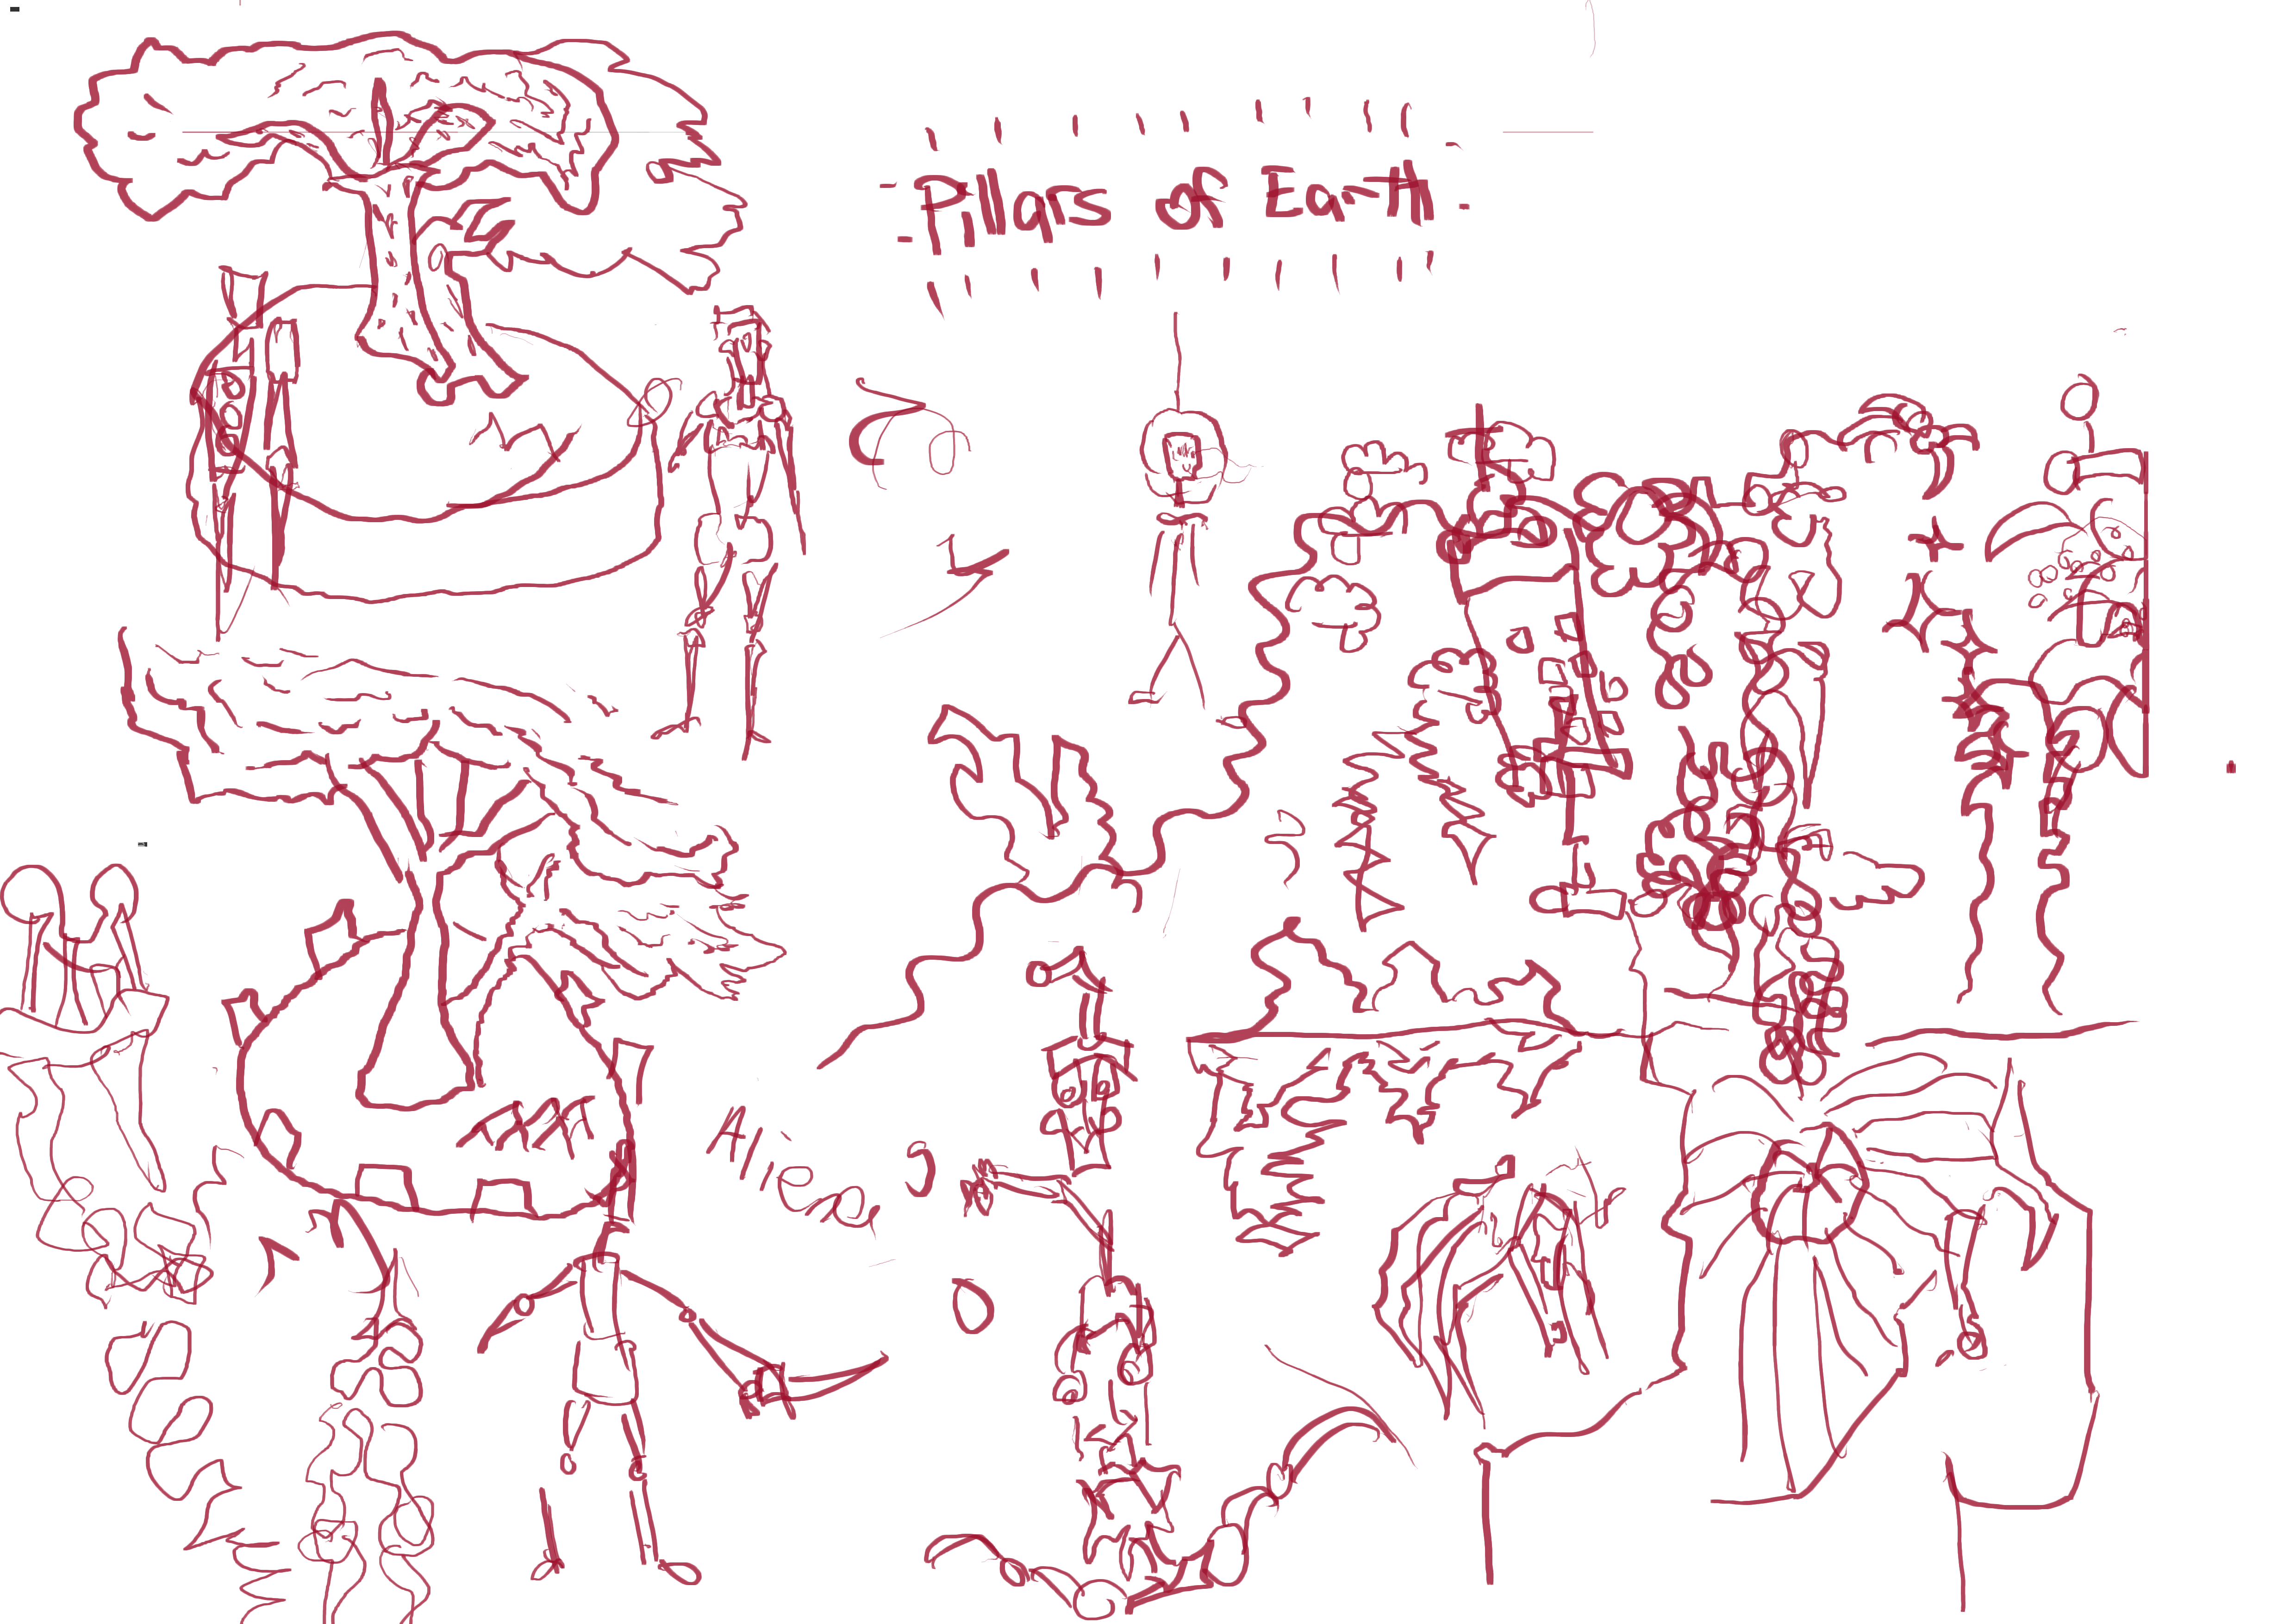 Pillars of Earth
Aliena